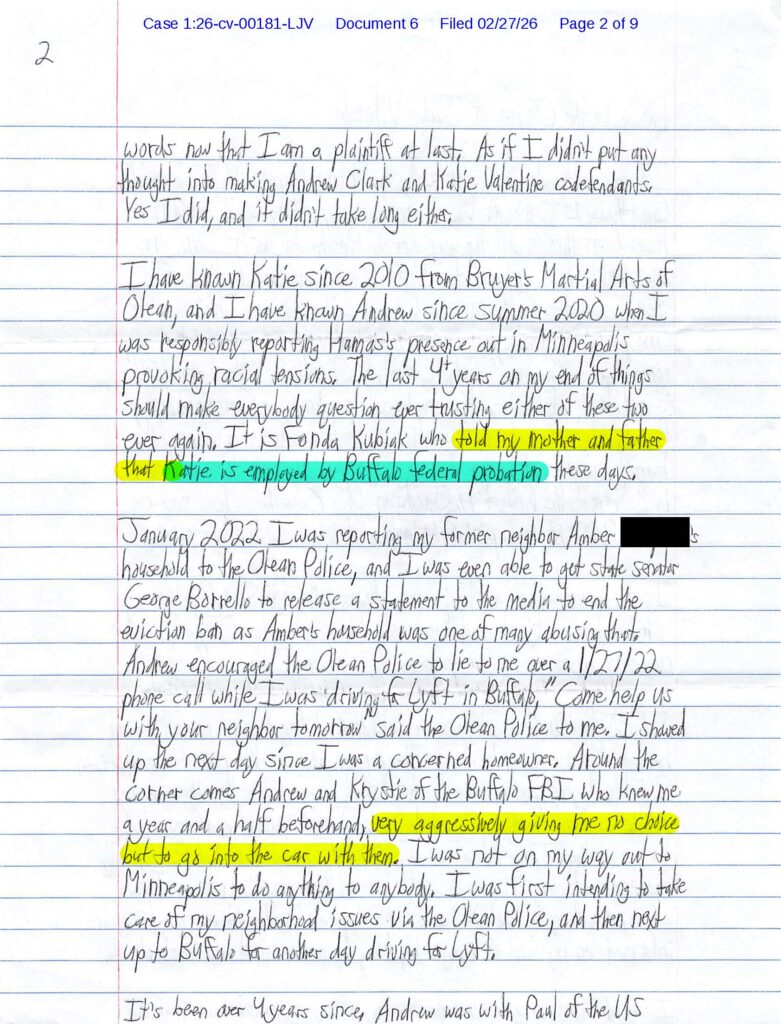 Case 1:26-cv-00181-LJV Document 6 Filed 02/27/26 Page 2 of 9
2
words now that I am a plaintiff at last. As if I didn't put any
thought into making Andrew Clark and Katie Valentine codefendants.
Yes I did, and it didn't take long either.
I have known Katie since 2010 from Bruyer's Martial Arts of
Olean, and I have known Andrew since summer 2020 when I
was responsibly reporting Hamas's presence out in Minneapolis
provoking racial tensions. The last 4+ years on my end of things
should make everybody question ever trusting either of these two
ever again. It is Fonda Kubiak who told my mother and father
that Katie is employed by Buffalo federal probation these days.
January 2022 I was reporting my former neighbor Amber 's
household to the Olean Police, and I was even able to get state senator
George Borrello to release a statement to the media to end the
eviction ban as Amber's household was one of many abusing that.
Andrew encouraged the Olean Police to lie to me over a 1/27/22
phone call while I was driving for Lyft in Buffalo, "Come help us
with your neighbor tomorrow" said the Olean Police to me. I showed
up the next day since I was a concerned homeowner. Around the
corner comes Andrew and Krystie of the Buffalo FBI who knew me
a year and a half beforehand, very aggressively giving me no choice
but to go into the car with them. I was not on my way out to
Minneapolis to do anything to anybody. I was first intending to take
care of my neighborhood issues via the Olean Police, and then next
up to Buffalo for another day driving for Lyft.
It's been over 4 years since, Andrew was with Paul of the US